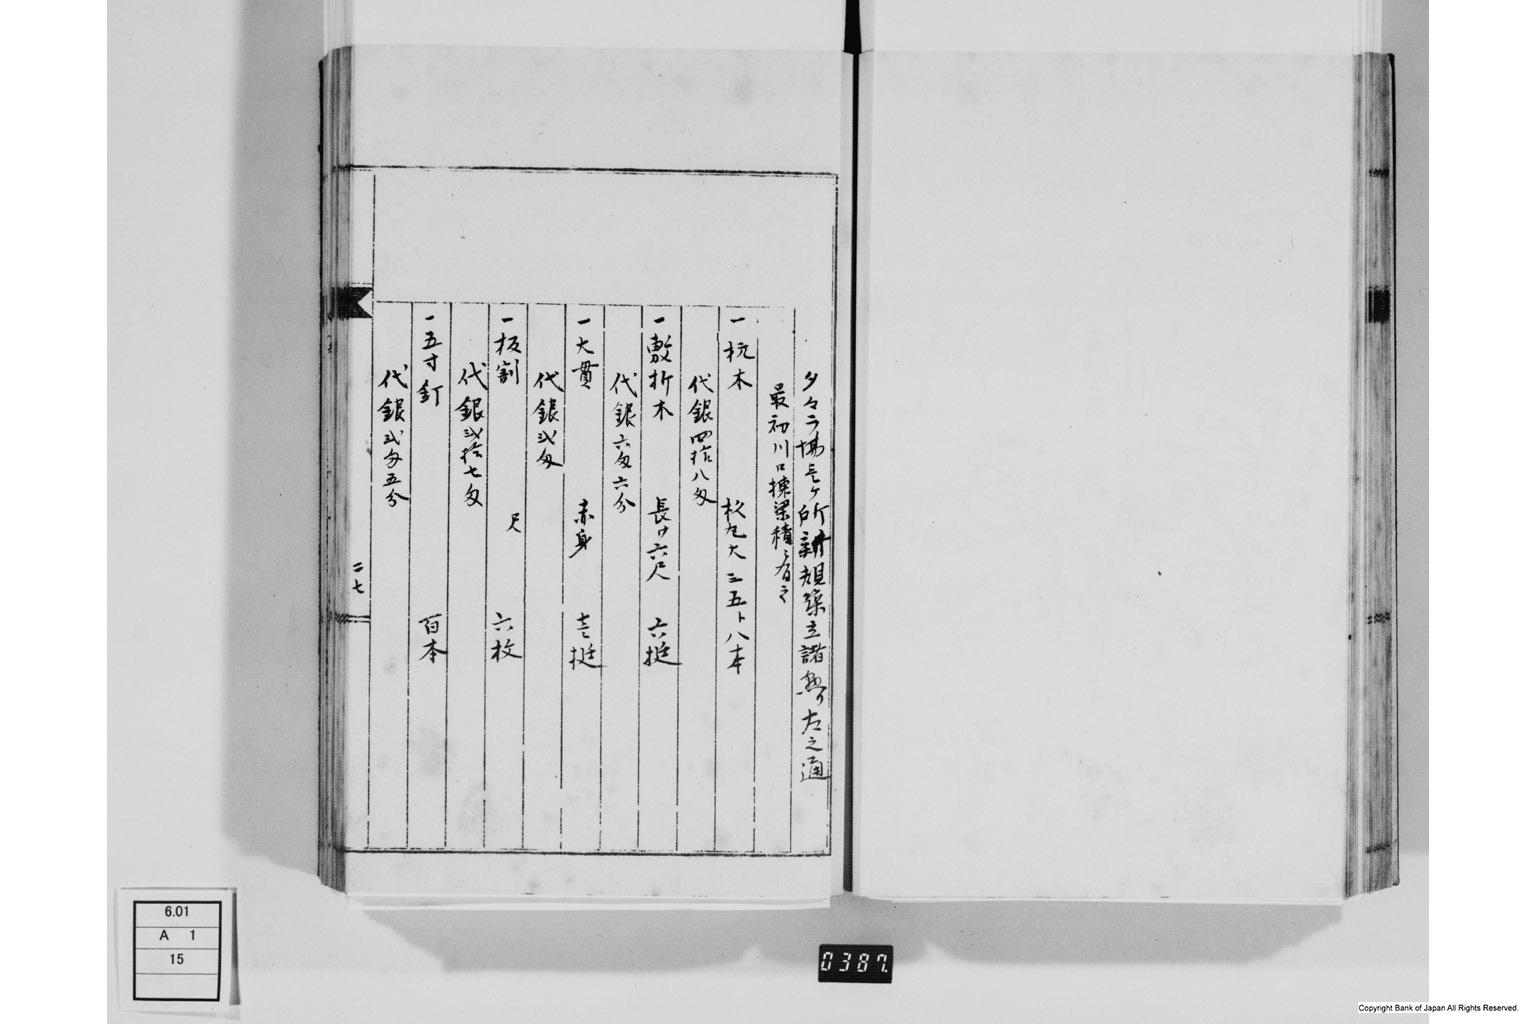 夕々ラ場壱ヶ所新規築立諸勘左之通
最初川口棟梁積ニ有之
一杭木 杉丸太 三五ト八本
代銀四拾八匁
一敷折木 長サ六尺 六挺
代銀六匁六分
一大貫 赤身 壱挺
代銀弐匁
一板割 尺 六枚
代銀弐拾七匁
一五寸釘 百本
代銀弐匁五分
二七
6.01
A 1
15
0387
Copyright Bank of Japan All Rights Reserved.